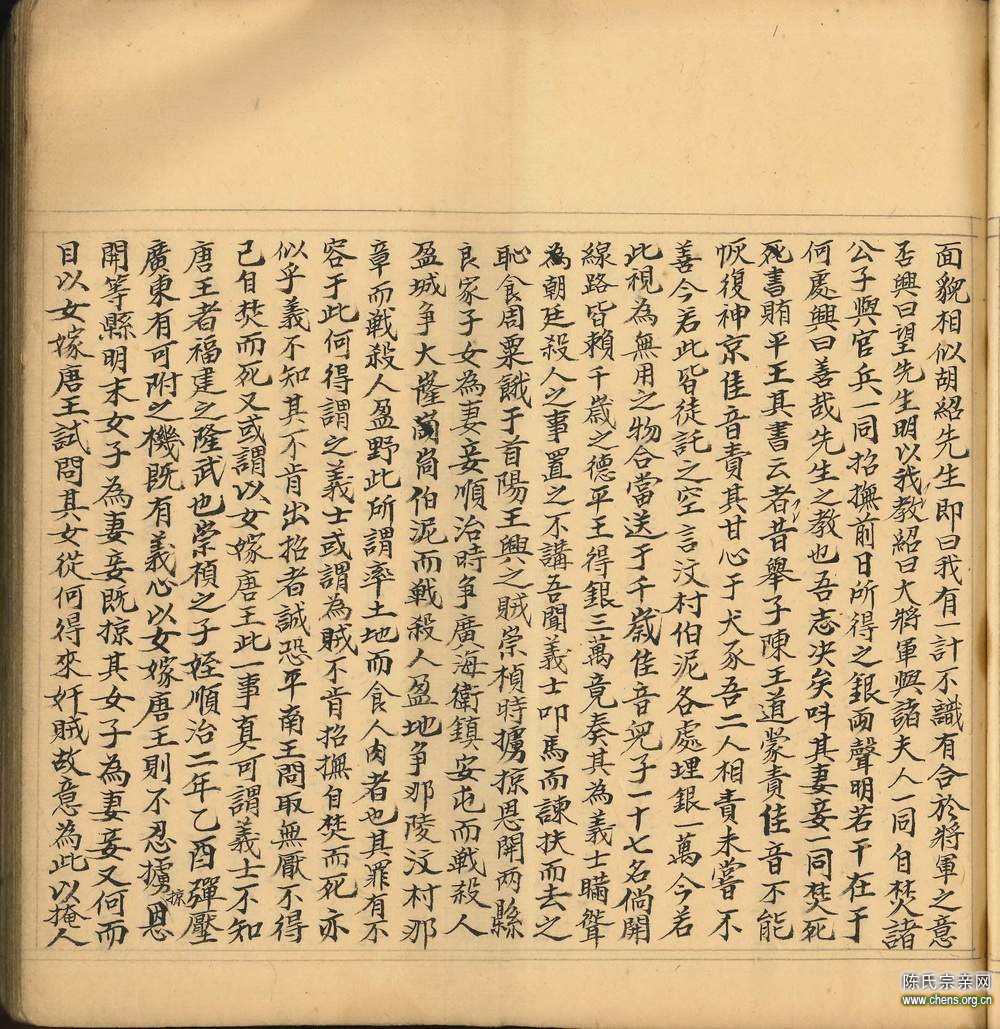 面貌相似胡紹先生即曰我有一計不識有合於將軍之意
否興曰望先生明以我教紹曰大將軍與諸夫人一同自焚諸
公子與官兵一同招撫前日所得之銀兩聲明若干在于
何處興曰善哉先生之教也吾志决矣呌其妻妾一同焚死
死書賄平王其書云者昔舉子陳王道蒙責佳音不能
恢復神京佳音責其甘心于犬豕吾二人相責未嘗不
善今若此皆徒託之空言汶村伯泥各處埋銀一萬今若
此視為無用之物合當送于千歲佳音兒子一十七名倘開
線路皆賴千歲之德平王得銀三萬竟奏其為義士瞞聳
為朝廷殺人之事置之不講吾聞義士叩馬而諫扶而去之
恥食周粟餓于首陽王興之賊崇禎時擄掠恩開两縣
良家子女為妻妾順治時争廣海衛鎮安屯而戰殺人
盈城争大窿崗尚伯泥而戰殺人盈地争那陵汶村那
章而戰殺人盈野此所謂率土地而食人肉者也其罪有不
容于此何得謂之義士或謂為賊不肯招撫自焚而死亦
似乎義不知其不肯出招者誠恐平南王問取無厭不得
已自焚而死又或謂以女嫁唐王此一事真可謂義士不知
唐王者福建之隆武也崇禎之子姪順治二年乙酉彈壓
廣東有可附之機既有義心以女嫁唐王則不忍擄掠恩
開等縣明末女子為妻妾既掠其女子為妻妾又何而
目以女嫁唐王試問其女從何得來奸賊故意為此以掩人
陈氏宗亲网
www.chens.org.cn